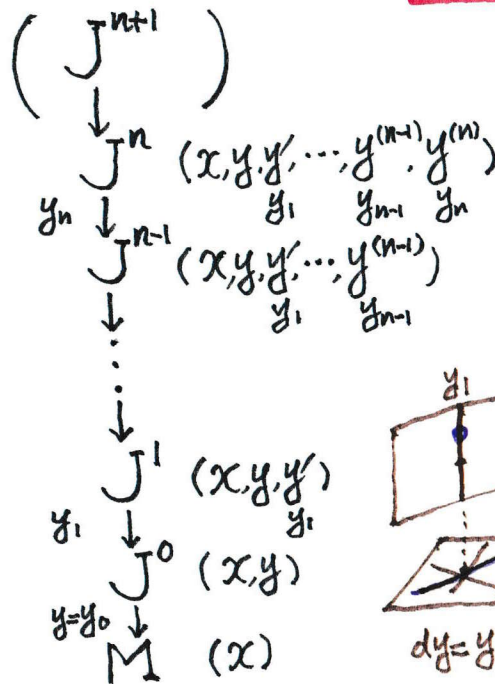 ( Jⁿ⁺¹ )
↓
Jⁿ (x, y, y′, ⋯, y⁽ⁿ⁻¹⁾, y⁽ⁿ⁾)
yₙ ↓ y₁ yₙ₋₁ yₙ
Jⁿ⁻¹ (x, y, y′, ⋯, y⁽ⁿ⁻¹⁾)
↓ y₁ yₙ₋₁
⋮
↓
J¹ (x, y, y′)
y₁ ↓ y₁
J⁰ (x, y)
y=y₀ ↓
M (x)
y₁
dy=y